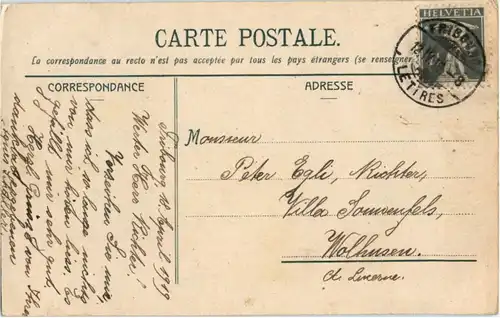 HELVETIA
FRIBOURG
LETTRES
CARTE POSTALE.
La correspondance au recto n'est pas acceptée par tous les pays étrangers (se renseigner
CORRESPONDANCE
ADRESSE
Monsieur
Peter Egli, Richter,
Villa Sonnenfels,
Wolhusen.
Ct. Luzerne.
Fribourg 12 April 1909
Werter Herr Richter!
Verzeihen Sie mir,
dass ich so lange nichts
von mir hören liess. Es
gefällt mir sehr gut.
Herzl. Gruss von Ihrer
dankb.